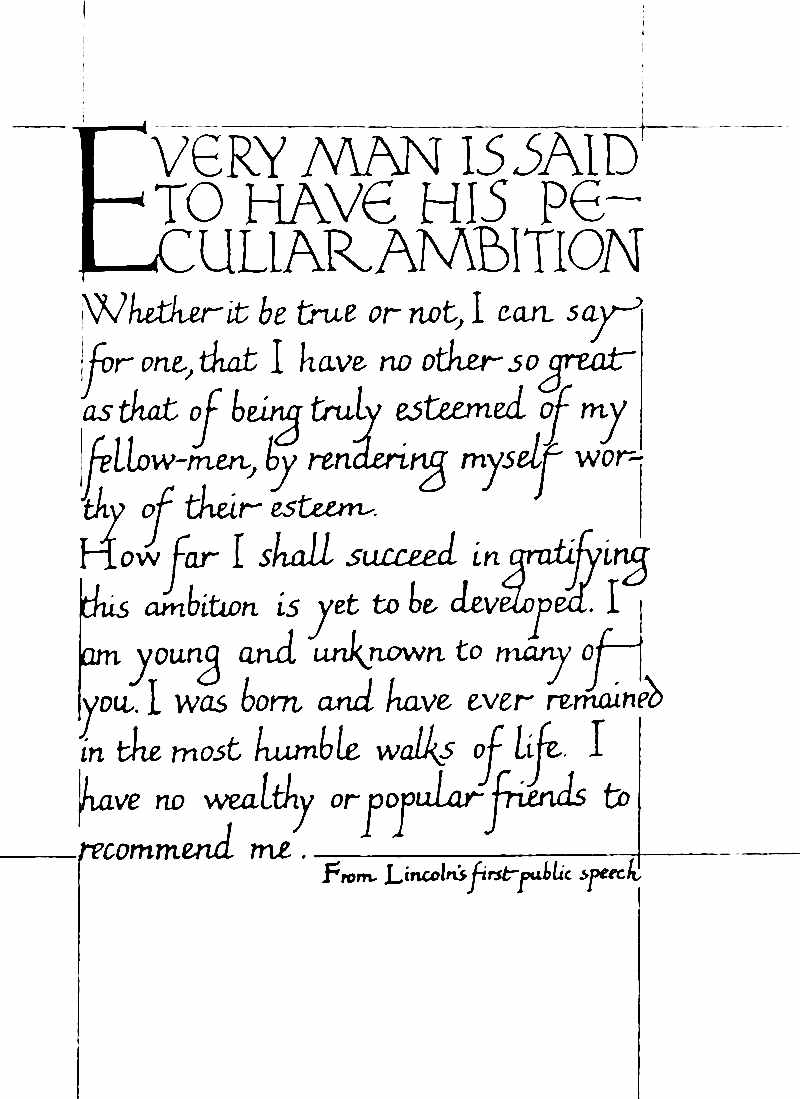 EVERY MAN IS SAID
TO HAVE HIS PE-
CULIAR AMBITION
Whether it be true or not, I can say
for one, that I have no other so great
as that of being truly esteemed of my
fellow-men, by rendering myself wor=
thy of their esteem.
How far I shall succeed in gratifying
this ambition is yet to be developed. I
am young and unknown to many of
you. I was born and have ever remained
in the most humble walks of life. I
have no wealthy or popular friends to
recommend me.
From Lincoln's first public speech